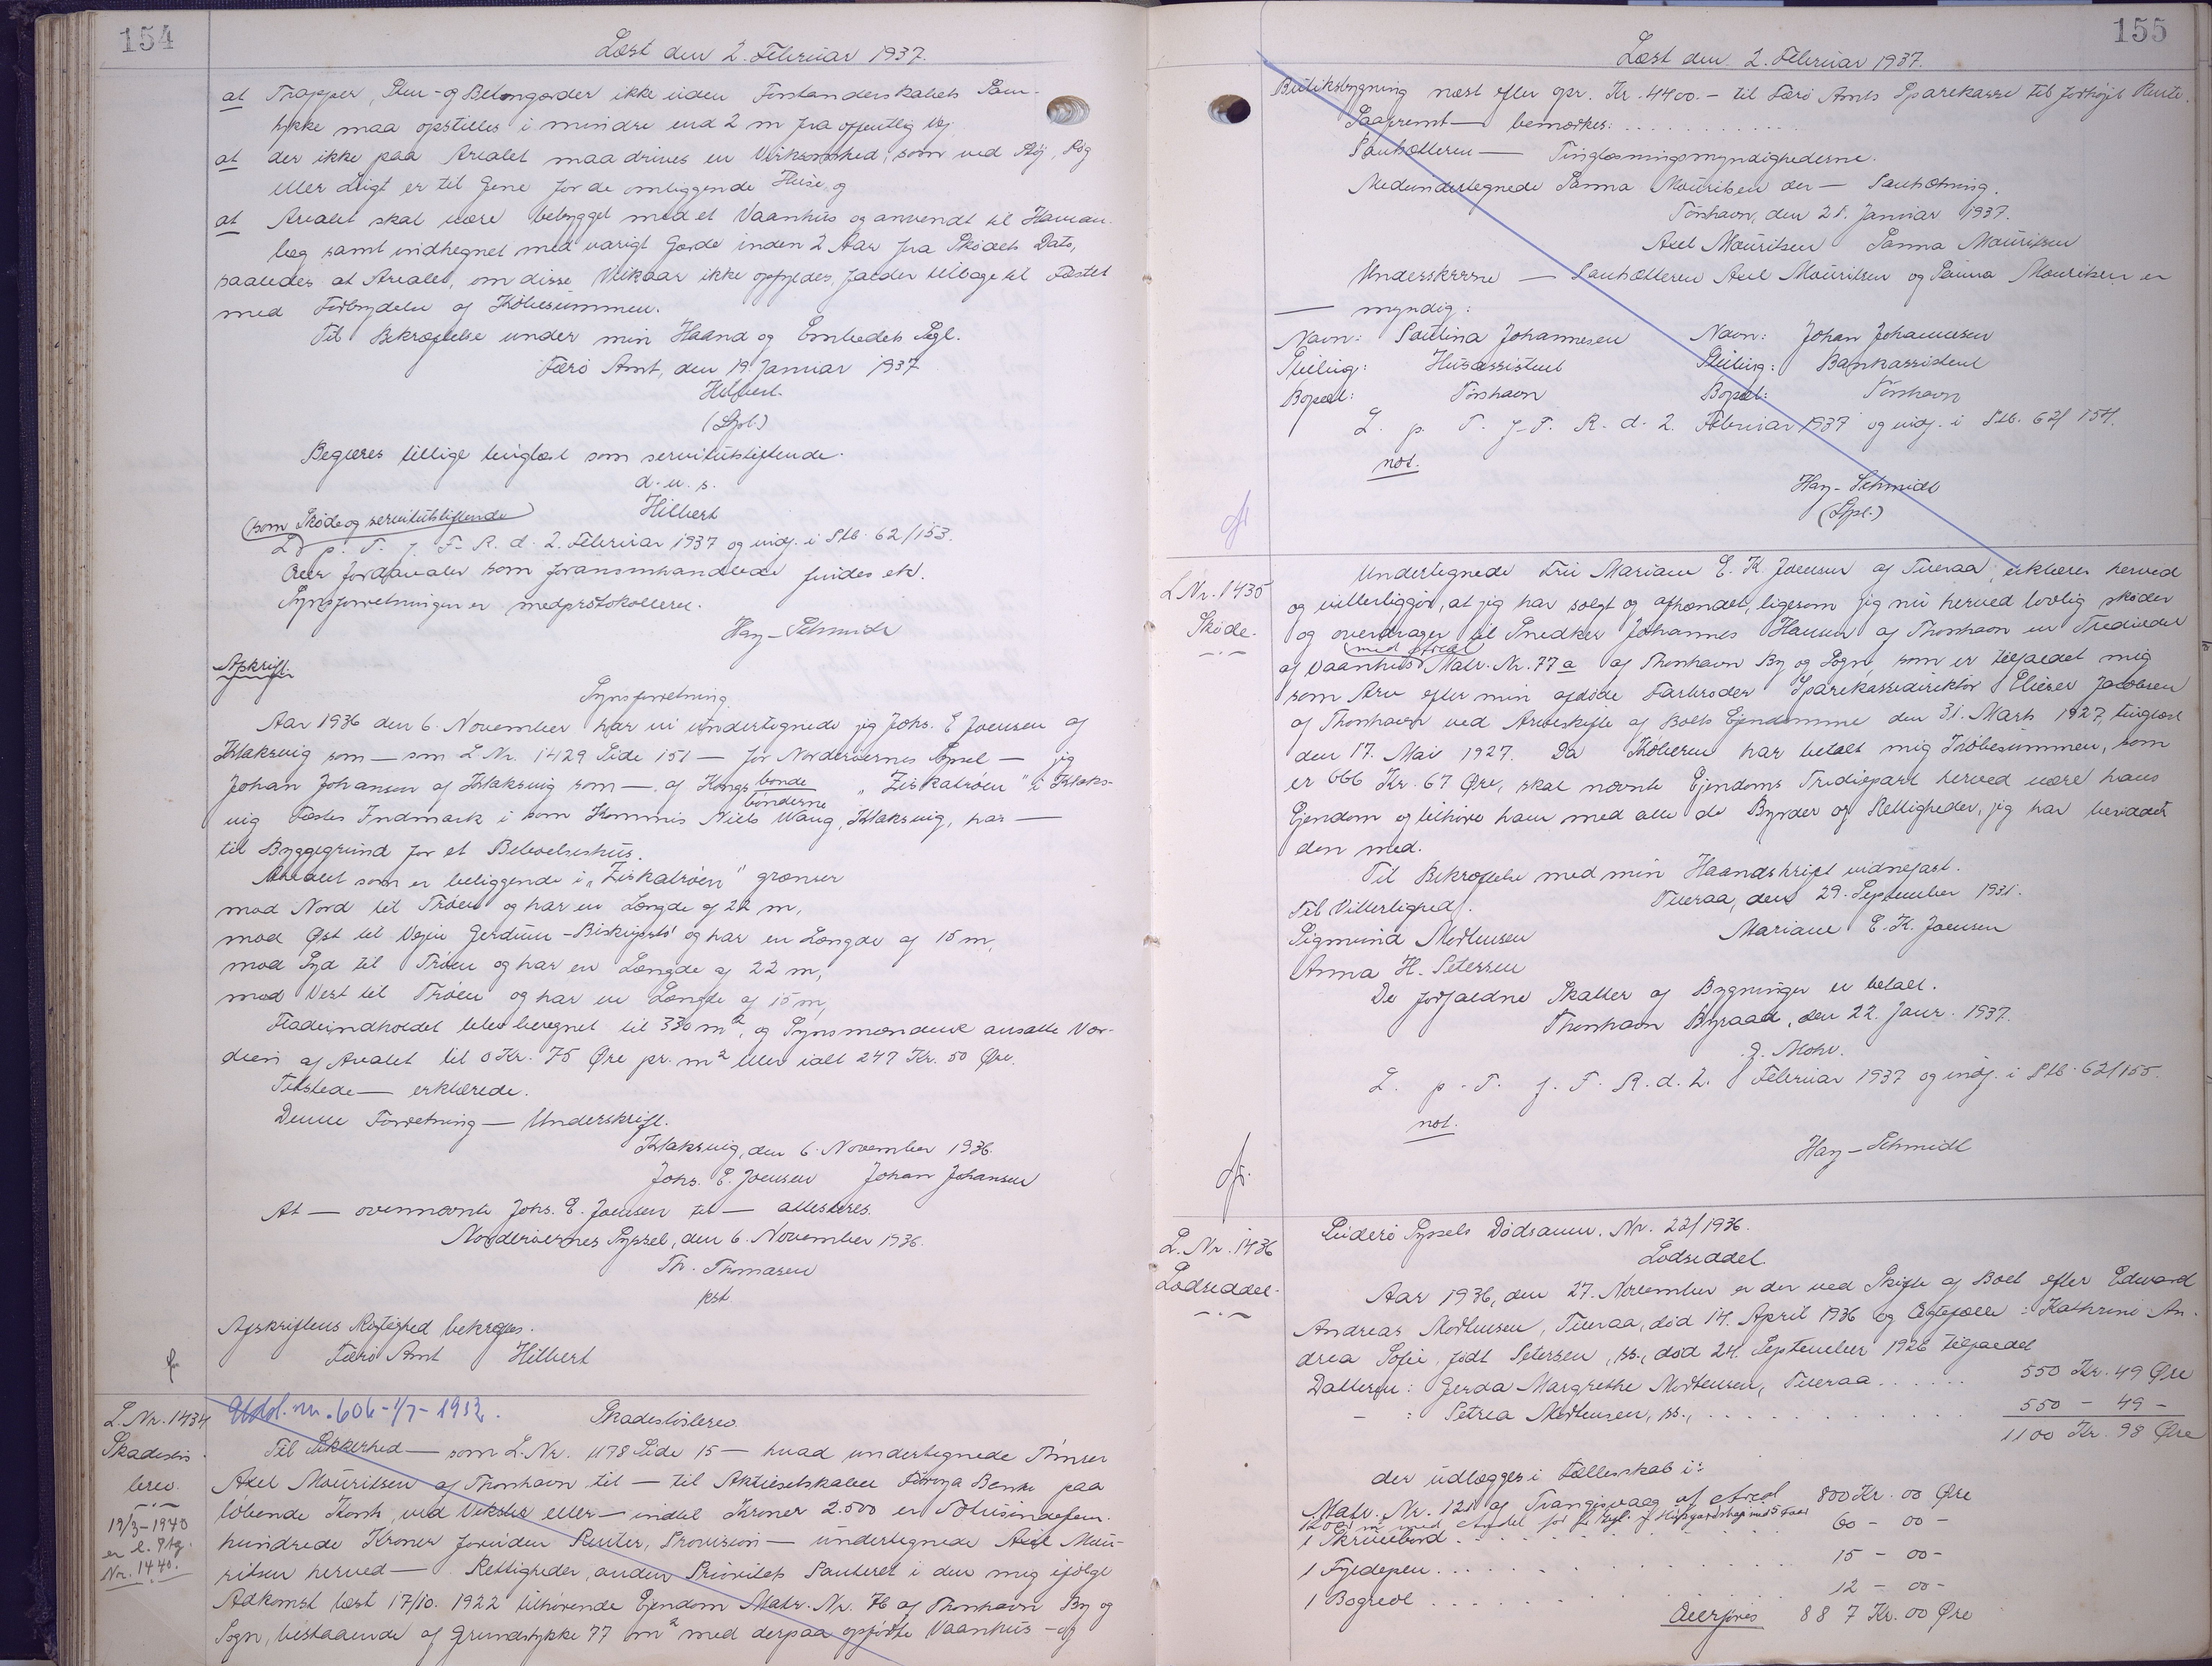 154
Læst den 2. Februar 1937.
at Trapper, Sten- og Betongærder ikke uden Forstanderskabets Sam-
tykke maa opstilles i mindre end 2 m fra offentlig Vej
at der ikke paa Arealet maa drives en Virksomhed, som ved Støj, Røg
eller Lugt er til Gene for de omliggende Huse, og
at Arealet skal være bebygget med et Vaanhus og anvendt til Havean-
læg samt indhegnet med varigt Gærde inden 2 Aar fra Skødets Dato,
saaledes at Arealet, om disse Vilkaar ikke opfyldes, falder tilbage til Fæstet
med Fortrydelse af Købesummen.
Til Bekræftelse under min Haand og Embedets Segl.
Færø Amt, den 19. Januar 1937
Hilbert.
(Sgl.)
Begæres tillige tinglæst som servitutstiftende.
d. u. s.
Hilbert
(som Skøde og servitutstiftende
L. p. T. f. F. R. d. 2. Februar 1937 og indf. i Stb. 62/153.
Over Jordarealer som foranomhandlede findes ek.
Synsforretningen er medprotokolleret.
Hay-Schmidt
Afskrift.
Synsforretning.
Aar 1936 den 6. November har vi undertegnede jeg Johs. E Joensen af
Klaksvig som — som L Nr. 1429 Side 151 — for Norderøernes Syssel — jeg
Johan Johansen af Klaksvig som — af Kongsbonde
bønderne "Ziskatrøen" i Klaks-
vig Fæstes Indmark i som Kommis Niels Waag, Klaksvig, har —
til Byggegrund for et Beboelseshus.
Arealet som er beliggende i "Ziskatrøen" grænser
mod Nord til Trøen og har en Længde af 22 m,
mod Øst til Vejen Gerdum - Biskupstø og har en Længde af 15 m,
mod Syd til Trøen og har en Længde af 22 m,
mod Vest til Trøen og har en Længde af 15 m,
Fladeindholdet blev beregnet til 330 m², og Synsmændene ansatte Vær-
dien af Arealet til 0 Kr. 75 Øre pr. m² eller ialt 247 Kr. 50 Øre.
Tilstede — erklærede.
Denne Forretning — Underskrift.
Klaksvig, den 6. November 1936.
Johs. E. Joensen Johan Johansen
At — ovennævnte Johs. E. Joensen til — attesteres.
Norderøernes Syssel, den 6. November 1936.
Th. Thomasen
kst
Afskriftens Rigtighed bekræftes.
Færø Amt Hilbert
L. Nr. 1434
Skadesløs
brev.
19/3-1940
Nr. 1440.
Udsl. nr. 606-1/7-1952.
Skadesløsbrev.
Til Sikkerhed — som L. Nr. 1178 Side 15 — hvad undertegnede Tømrer
Axel Mouritsen af Thorshavn til — til Aktieselskabet Føroya Banki paa
løbende Konto, ved Veksler eller — indtil Kroner 2.500 er Totusindefem-
hundrede Kroner foruden Renter, Provision — undertegnede Axel Mou-
ritsen herved — Rettigheder, anden Prioritets Panteret i den mig ifølge
Adkomst læst 17/10. 1922 tilhørende Ejendom Matr. Nr. 76 af Thorshavn By og
Sogn, bestaaende af Grundstykke 77 m² med derpaa opførte Vaanhus - og
155
Læst den 2. Februar 1937.
Butiksbygning næst efter opr. Kr. 4400.- til Færø Amts Sparekasse til forhøjet Rente.
Saafremt — bemærkes: . . . . . . . . . . . .
Panthaveren — Tinglæsningsmyndighederne.
Medundertegnede Sanna Mouritsen der — Pantsætning.
Tórshavn, den 21. Januar 1937.
Axel Mouritsen Sanna Mouritsen
Underskrerne — Panthaveren Axel Mouritsen og Sanna Mouritsen er
— myndig:
Navn: Paulina Johannesen Navn: Johan Johannesen
Stilling: Husassistent Stilling: Bankassistent
Bopæl: Tórshavn Bopæl: Tórshavn
L. p. T. f. F. R. d. 2. Februar 1937 og indf. i Stb. 62/154.
not.
Hay-Schmidt
(Sgl.)
L Nr. 1435
Skøde.
Undertegnede Fru Mariane E. K. Joensen af Tveraa, erklærer herved
og vitterliggør, at jeg har solgt og afhændet, ligesom jeg nu herved lovlig skøder
og overdrager til Snedker Johannes Hansen af Thorshavn en Trediedel
af Vaanhus (med Areal) Matr. Nr. 77 a af Thorshavn By og Sogn, som er tilfaldet mig
som Arv efter min afdøde Farbroder Sparekassedirektør Eliezer Jacobsen
af Thorshavn ved Arveskifte af Boets Ejendomme den 31. Marts 1927, tinglæst
den 17. Mai 1927. Da Køberen har betalt mig Købesummen, som
er 666 Kr. 67 Øre, skal nævnte Ejendoms Trediepart herved være hans
Ejendom og tilhøre ham med alle de Byrder og Rettigheder, jeg har besiddet
den med.
Til Bekræftelse med min Haandskrift vidnefast.
Tveraa, den 29. September 1931.
Til Vitterlighed:
Mariane E. K. Joensen
Sigmund Mortensen
Anna H. Petersen
De forfaldne Skatter af Bygninger er betalt.
Thorshavn Byraad, den 22. Janr. 1937.
J. Mohr.
L. p. T. f. F. R. d. 2. Februar 1937 og indf. i Stb. 62/155.
not.
Hay-Schmidt
L. Nr. 1436
Lodseddel.
Suderø Syssels Dødsanm. Nr. 22/1936.
Lodseddel.
Aar 1936, den 27. November er der ved Skifte af Boet efter Edward
Andreas Mortensen, Tveraa, død 14. April 1936 og Ægtefælle: Kathrine An-
drea Sofie, født Petersen, ss., død 24. September 1926 tilfaldet
Datteren: Gerda Margrethe Mortensen, Tveraa . . . . . . 550 Kr. 49 Øre
- : Petrea Mortensen, ss., . . . . . . . . . . 550 - 49 -
1100 Kr. 98 Øre
der udlægges i Fællesskab i:
Matr. Nr. 121 af Trangisvaag af Areal 800 Kr. 00 Øre
1 Skrivebord . . . . . . . . . . 60 - 00 -
1 Fyldepen . . . . . . . . . . 15 - 00 -
1 Bogreol . . . . . . . . . . 12 - 00 -
Overføres 887 Kr. 00 Øre